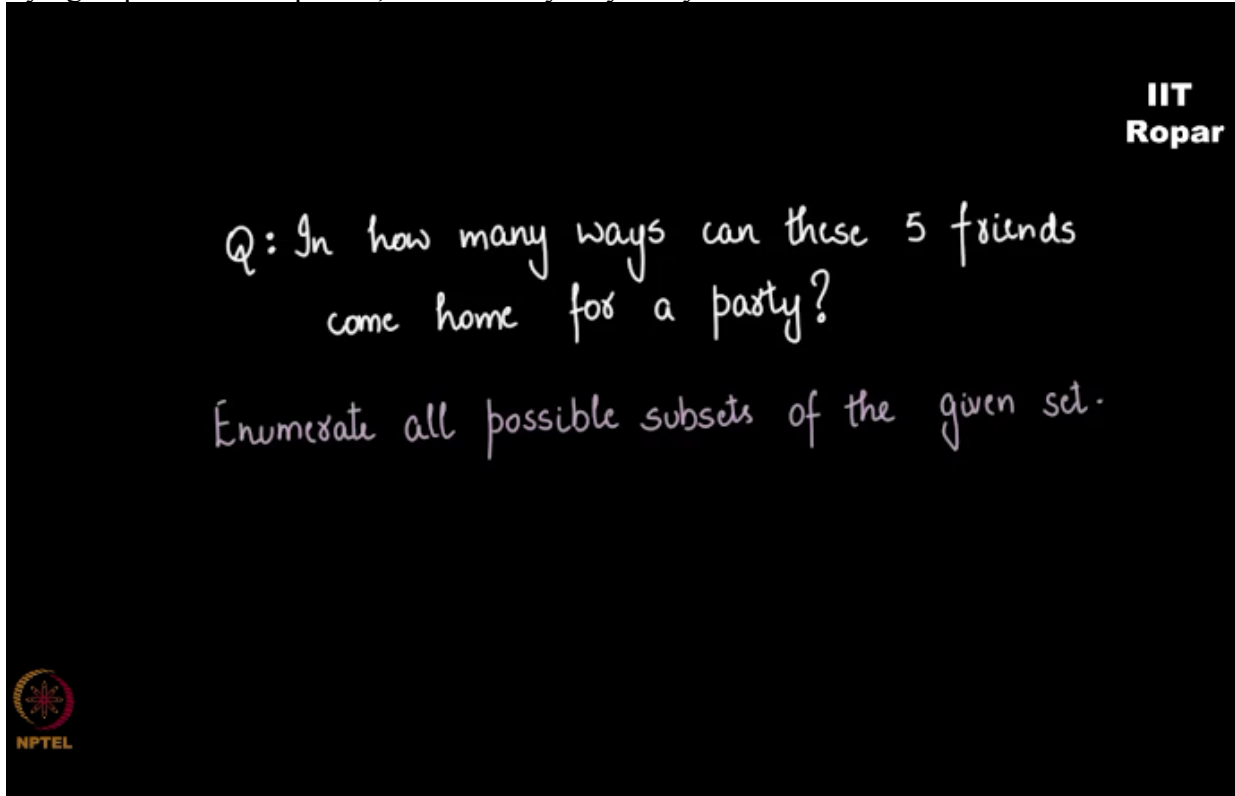 IIT
Ropar
Q: In how many ways can these 5 friends
come home for a party?
Enumerate all possible subsets of the given set.
NPTEL